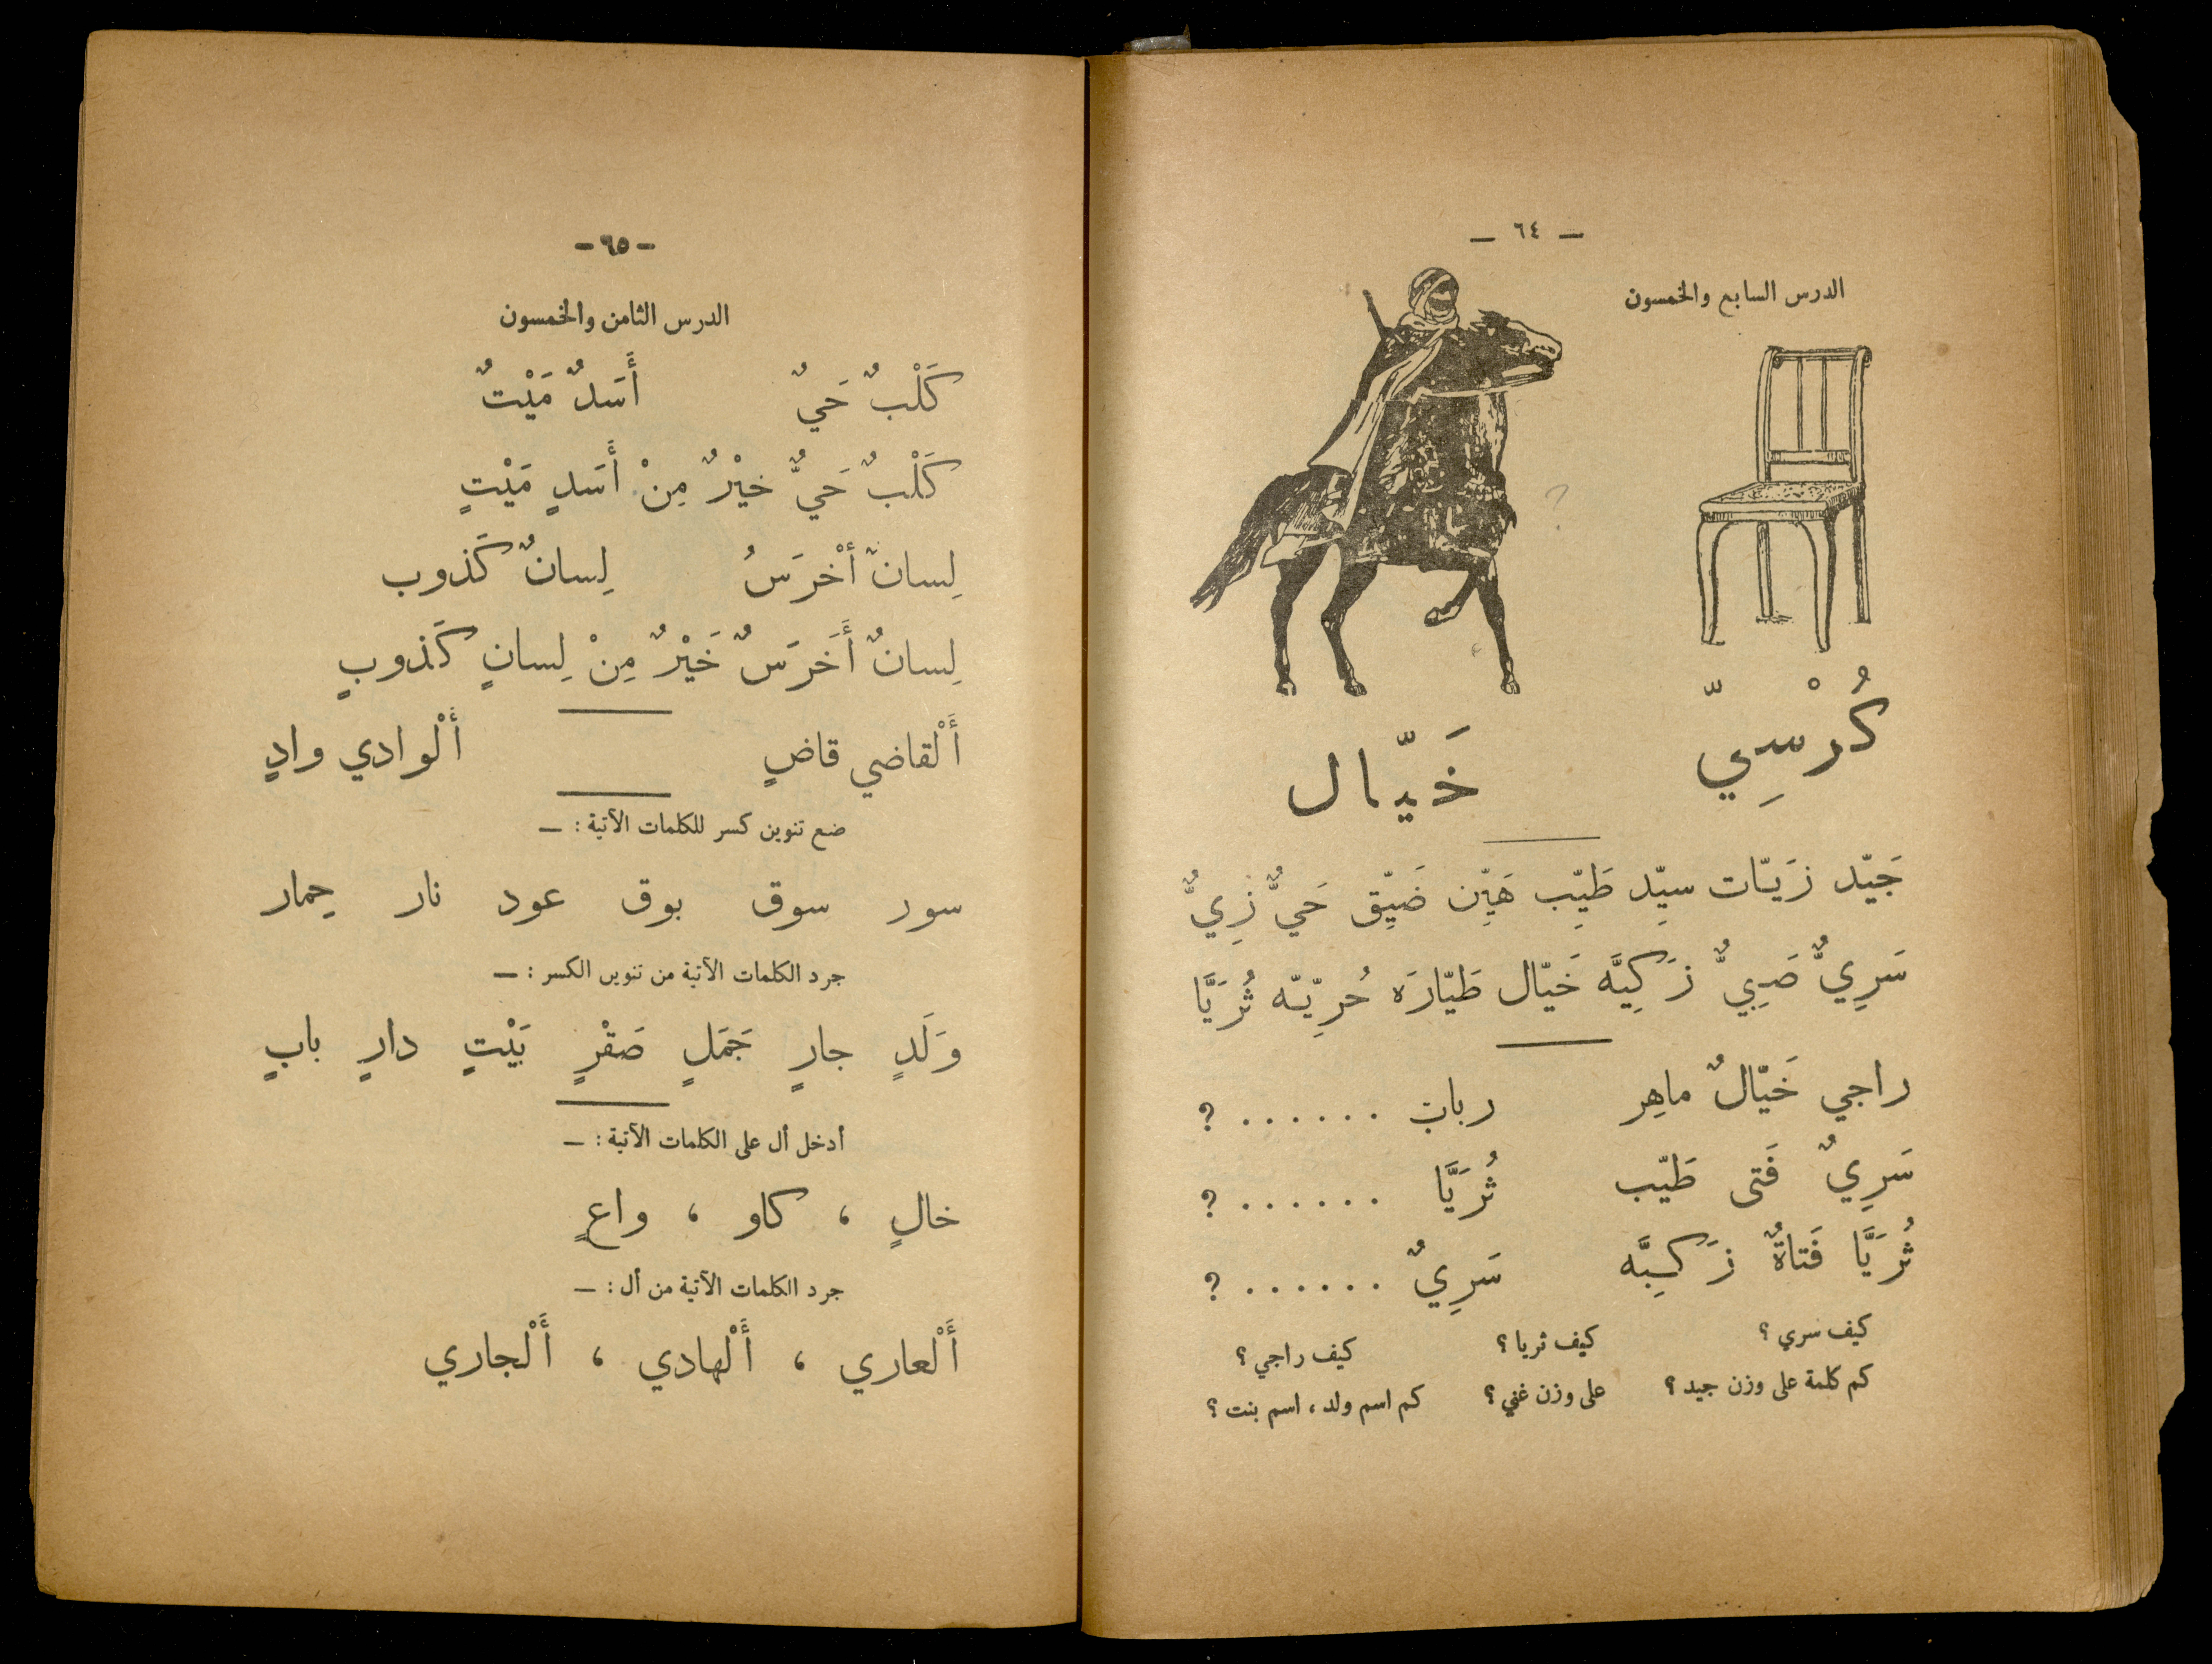 — ٦٤ —
الدرس السابع والخمسون
كُرْسِيّ
خَيّال
جَيّد زَيّات سيِّد طَيِّب هَيِّن ضَيِّق حَيٌّ زِيٌّ
سَرِيٌّ صَبِيٌّ زَكِيَّه خَيّال طَيّارَه حُرِّيّه ثُرَيَّا
راجي خَيّالٌ ماهِر رباب . . . . . . ؟
سَرِيٌ فَتى طَيّب ثُرَيَّا . . . . . . ؟
ثُرَيَّا فَتاةٌ زَكِيَّه سَرِيٌ . . . . . . ؟
كيف سري ؟ كيف ثريا ؟ كيف راجي ؟
كم كلمة على وزن جيد ؟ على وزن غني ؟ كم اسم ولد ، اسم بنت ؟
— ٦٥ —
الدرس الثامن والخمسون
كَلْبٌ حَيٌ أَسَدٌ مَيْتٌ
كَلْبٌ حَيٌّ خيْرٌ مِنْ أَسَدٍ مَيْتٍ
لِسانٌ أخْرَسُ لِسانٌ كَذوب
لِسانٌ أَخَرَسٌ خَيْرٌ مِنْ لِسانٍ كَذوبٍ
أَلْقاضي قاضٍ أَلْوادي وادٍ
ضع تنوين كسر للكلمات الآتية : —
سور سوق بوق عود نار حِمار
جرد الكلمات الآتية من تنوين الكسر : —
وَلَدٍ جارٍ جَمَلٍ صَقْرٍ بَيْتٍ دارٍ بابٍ
أدخل أل على الكلمات الآتية : —
خالٍ ، كاو ، واعٍ
جرد الكلمات الآتية من أل : —
أَلْعاري ، أَلْهادي ، أَلْجاري